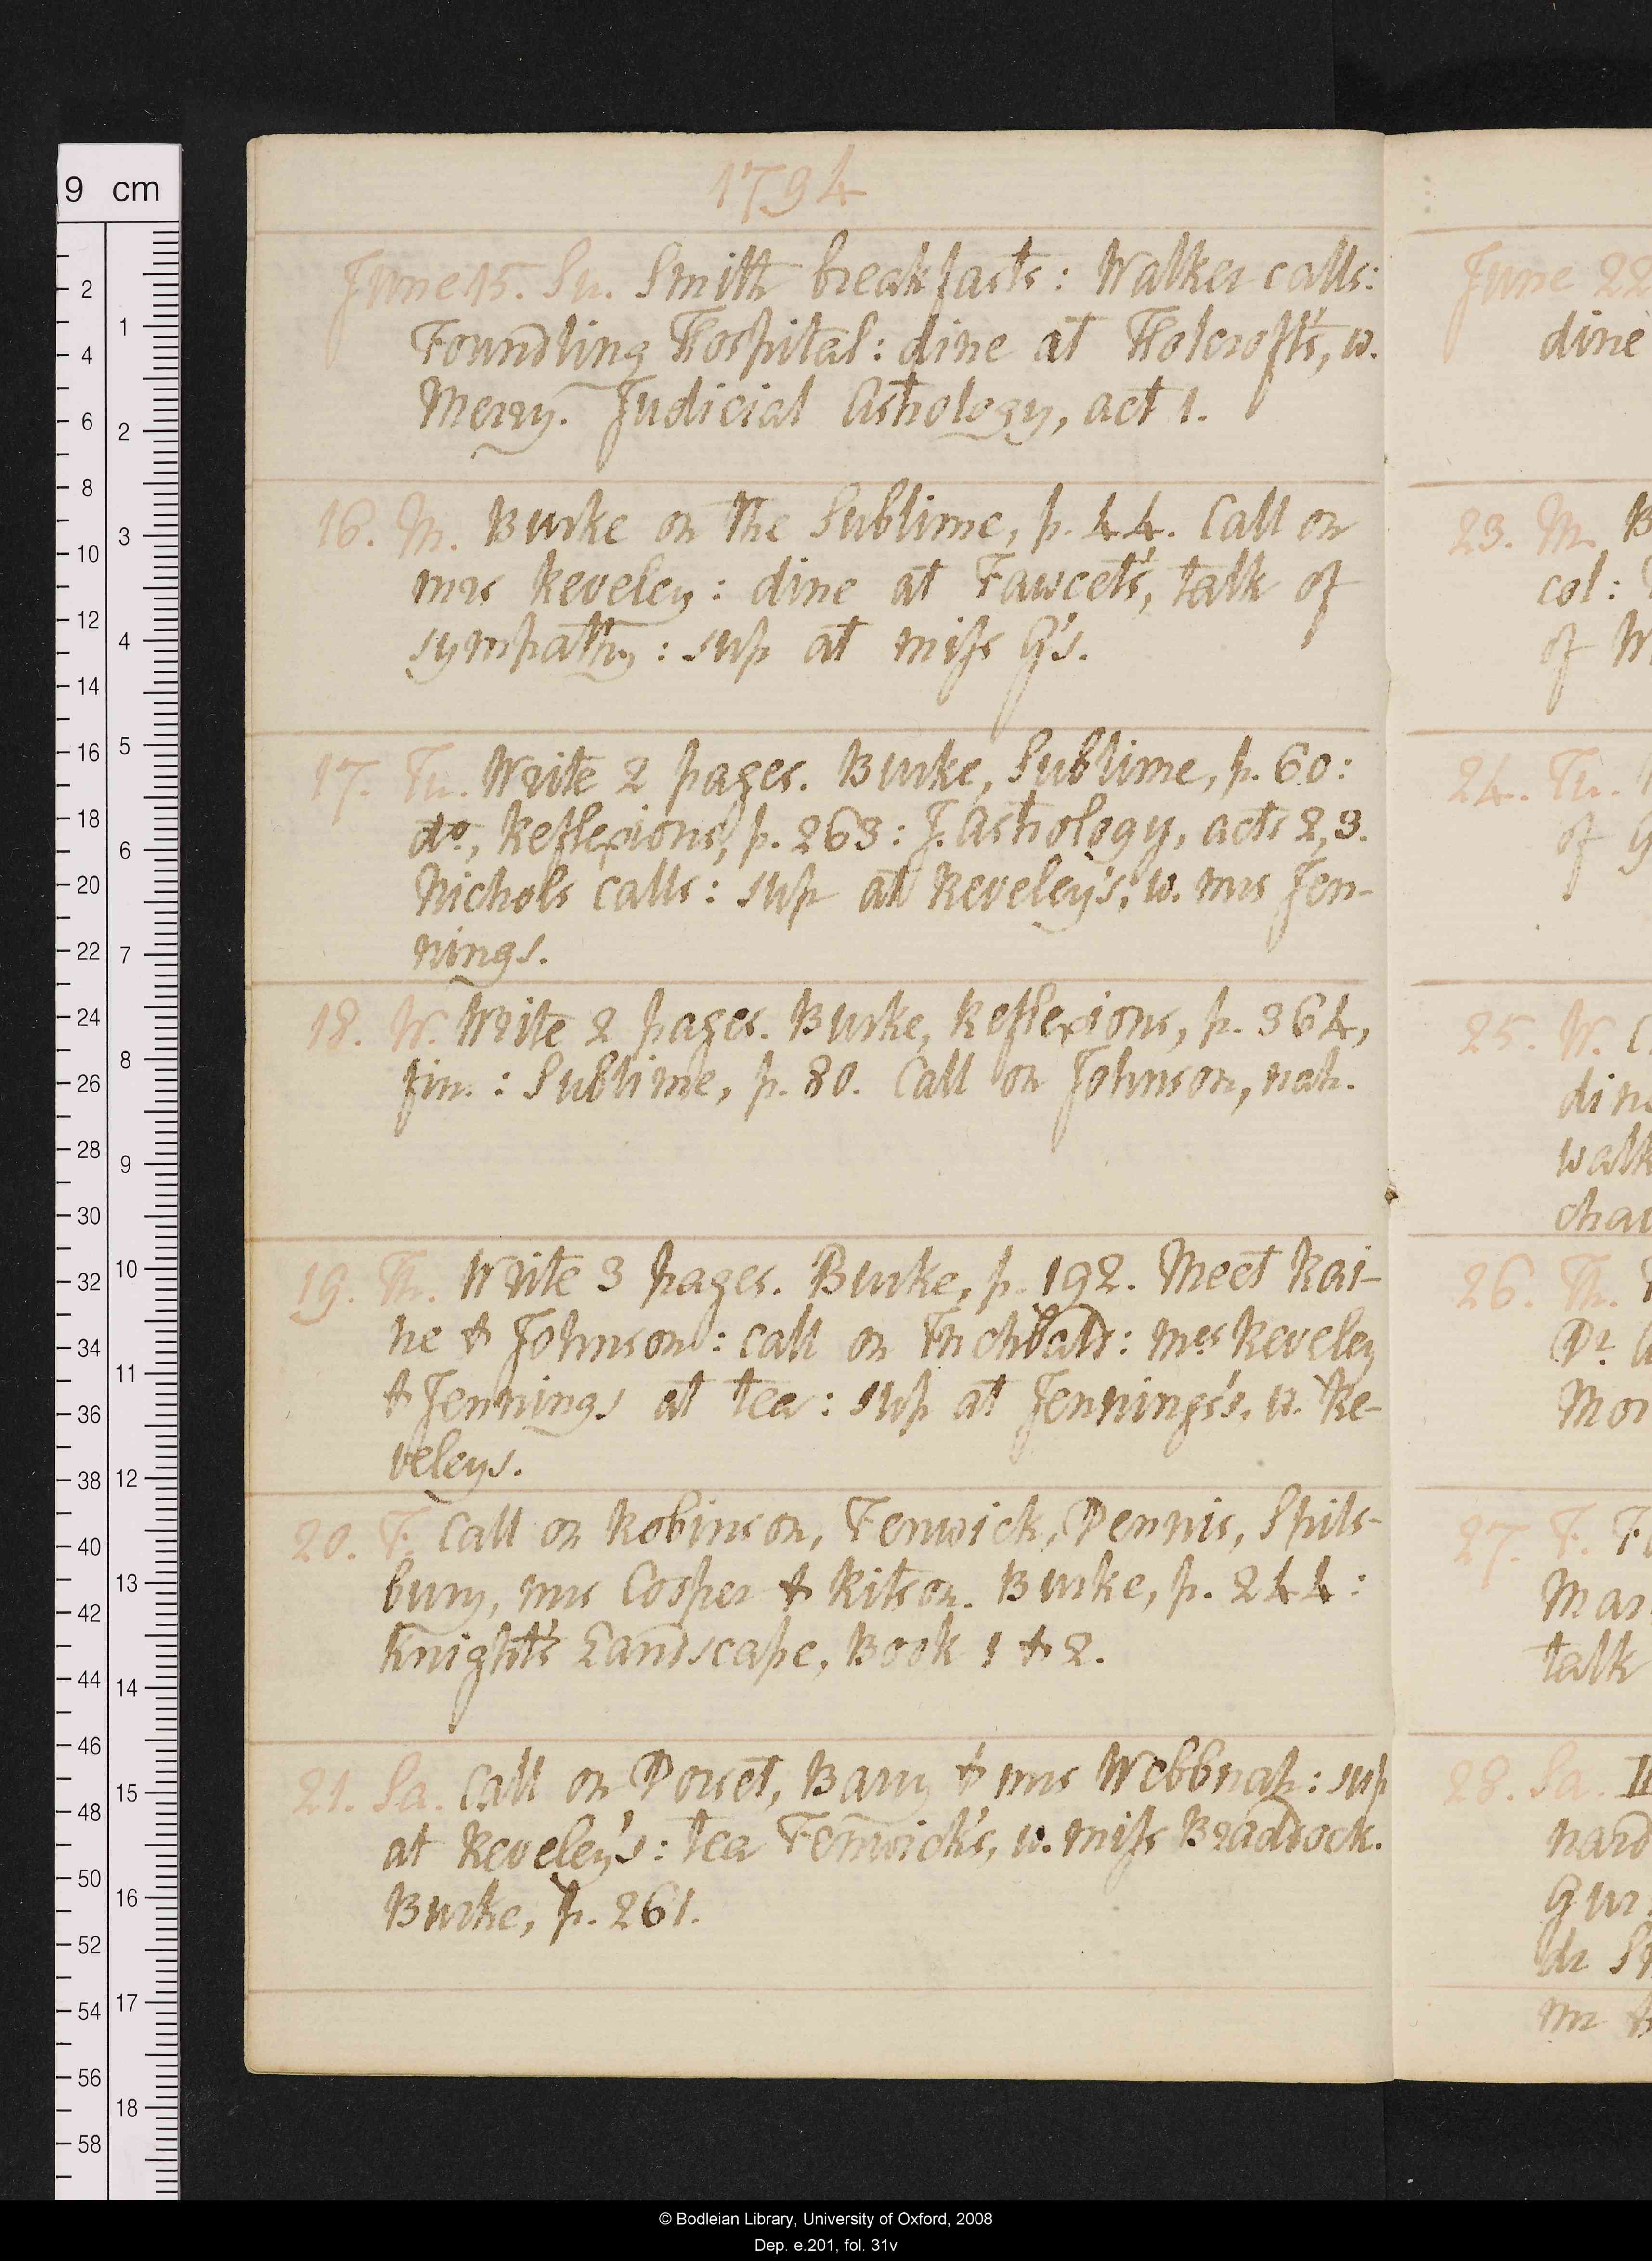 1794
June 15. Su. Smith breakfasts: Walker calls:
Foundling Hospital: dine at Holcroft's, w.
Merry. Judicial Astrology, act 1.
16. M. Burke on the Sublime, p. 44. Call on
mrs Reveley: dine at Fawcet's, talk of
sympathy: sup at miss G's.
17. Tu. Write 2 pages. Burke, Sublime, p. 60:
do, Reflexions, p. 263: J. Astrology, acts 2, 3.
Nichols calls: sup at Reveley's, w. mrs Jen-
nings.
18. W. Write 2 pages. Burke, Reflexions, p. 364,
fin.: Sublime, p. 80. Call on Johnson, nah.
19. Th. Write 3 pages. Burke, p. 192. Meet Rai-
ne & Johnson: call on Inchbald: mrs Reveley
& Jennings at tea: sup at Jennings's, w. Re-
veleys.
20. F. Call on Robinson, Fenwick, Dennis, Spils-
bury, mrs Cosper & Ritson. Burke, p. 244:
Knight's Landscape, Book 1 & 2.
21. Sa. Call on Dorset, Barry & mrs Webb nah: sup
at Reveley's: tea Fenwick's, w. miss Braddock.
Burke, p. 261.
June 22
dine
23. M. B
col:
of W
24. Tu.
of G
25. W. C
dine
walk
26. Th.
Dr.
Mor
27. F. F
Mar
talk
28. Sa.
nard
Gur
dr St
mr
9 cm
2
4
6
8
10
12
14
16
18
20
22
24
26
28
30
32
34
36
38
40
42
44
46
48
50
52
54
56
58
1
2
3
4
5
6
7
8
9
10
11
12
13
14
15
16
17
18
© Bodleian Library, University of Oxford, 2008
Dep. e.201, fol. 31v